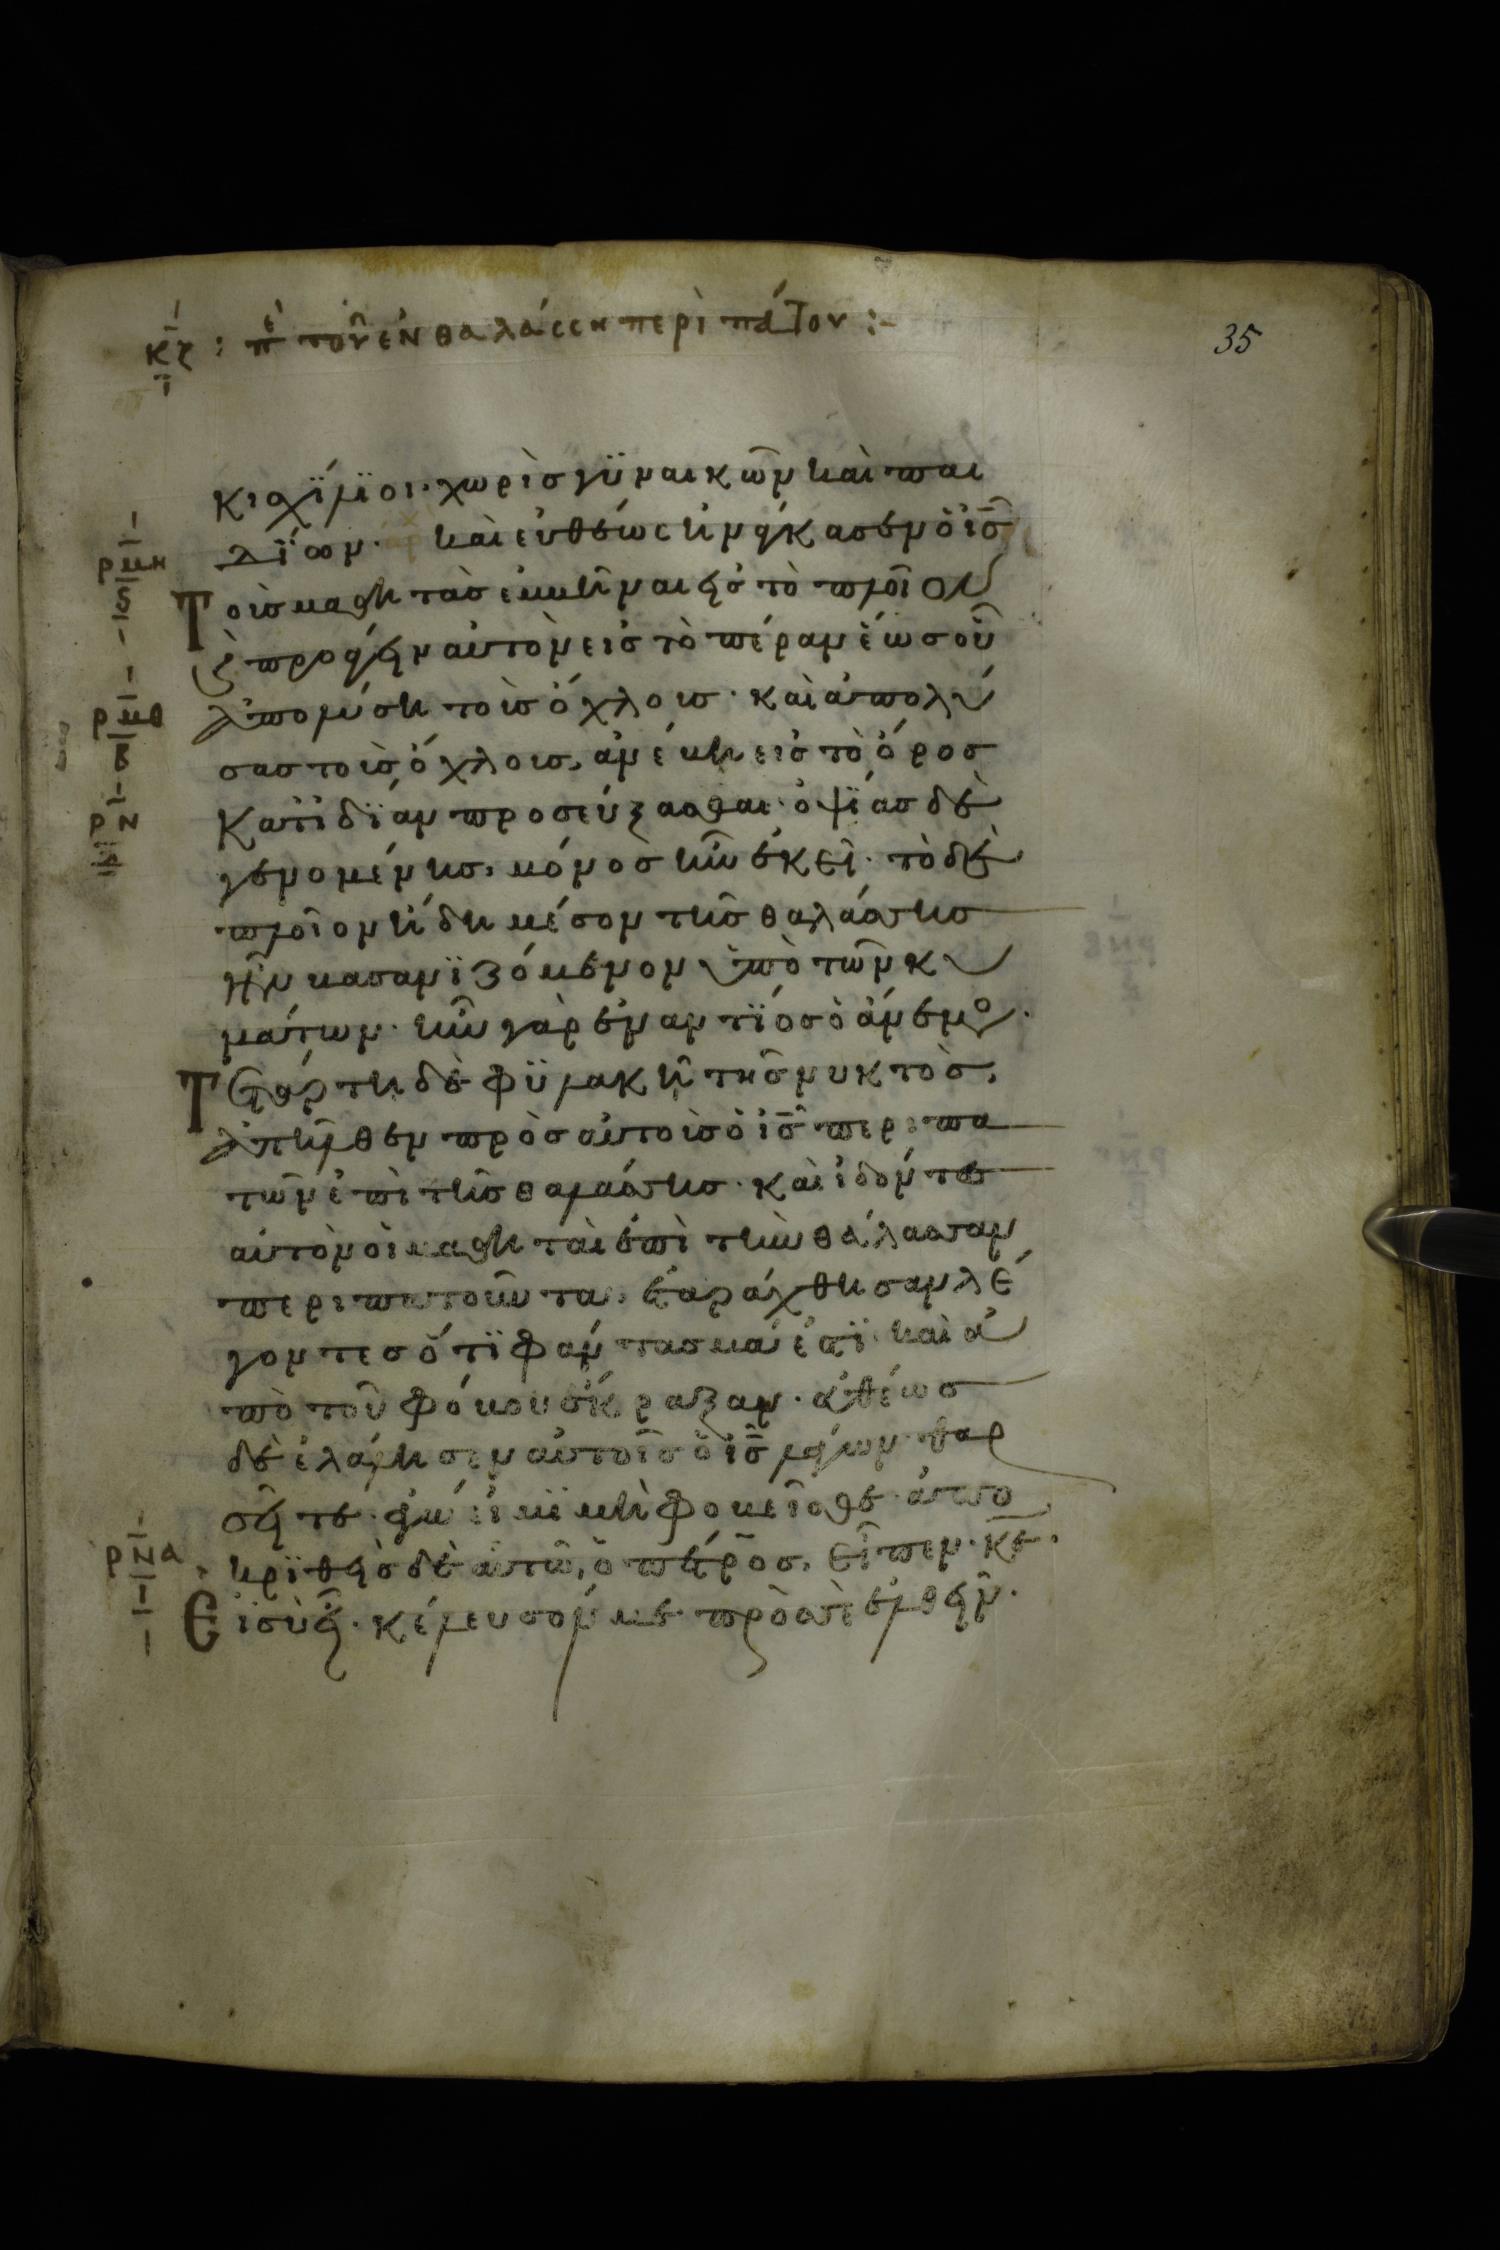 κζ : πε τοῦ ἐν θαλάσση περὶ πάτου :-
ι
35
κισχίλϊοι· χωρὶσ γϋναικῶν καὶ παι
ρμη δΐων· καὶ εὐθέως ἠνάγκασεν ὁ ι̅σ̅
ς Τοὺσ μαθητὰσ ἐμβῆναι εἰσ τὸ πλοῖον
προάγειν αὐτὸν εἰσ τὸ πέραν ἕωσ οὗ
ρμθ ἀπολύση τοὺσ ὄχλουσ· καὶ ἀπολύ
β σασ τοὺσ ὄχλουσ, ἀνέβη εἰσ τὸ ὄροσ
ρν Κατιδΐαν προσεύξασθαι· ὀψΐασ δὲ
γενομένησ, μόνοσ ἦν ἐκεῖ· τὸ δὲ
πλοῖον ἤδη μέσον τῆσ θαλάσσησ
ἦν βασανϊζόμενον ὑπὸ τῶν κυ
μάτων· ἦν γὰρ ἐναντΐοσ ὁ ἄνεμο·
Τετάρτη δὲ φϋλακῆ τῆσ νυκτὸσ,
ἀπῆλθεν πρὸσ αὐτοὺσ ὁ ι̅σ̅ περιπα
τῶν ἐπὶ τῆσ θαλάσσησ· καὶ ἰδόντεσ
αὐτὸν οἱ μαθηταὶ ἐπὶ τὴν θάλασσαν
περιπατοῦντα, ἐταράχθησαν λέ
γοντεσ ὅτϊ φάντασμά ἐστϊ· καὶ ἀ
πὸ τοῦ φόβου ἔκραξαν· εὐθέωσ
δὲ ἐλάλησεν αὐτοῖσ ὁ ι̅σ̅ λέγων· θαρ
σεῖτε· ἐγώ εἰμϊ μὴ φοβεῖσθε· ἀπο
ρνα κρϊθεὶσ δὲ αὐτῶ, ὁ πέτροσ, εἶπεν· κ̅ε̅·
ι Εἰ σὺ εἶ· κέλευσόν με πρόσ σε ἐλθεῖν·